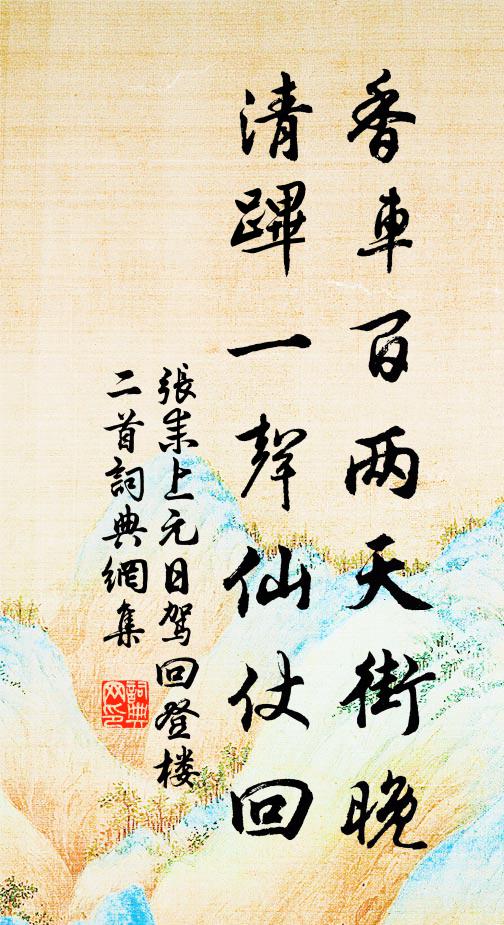 香車百两天街晚
清蹕一聲仙仗回
張耒上元日駕回登楼
二首詞典網集
詞典
网印